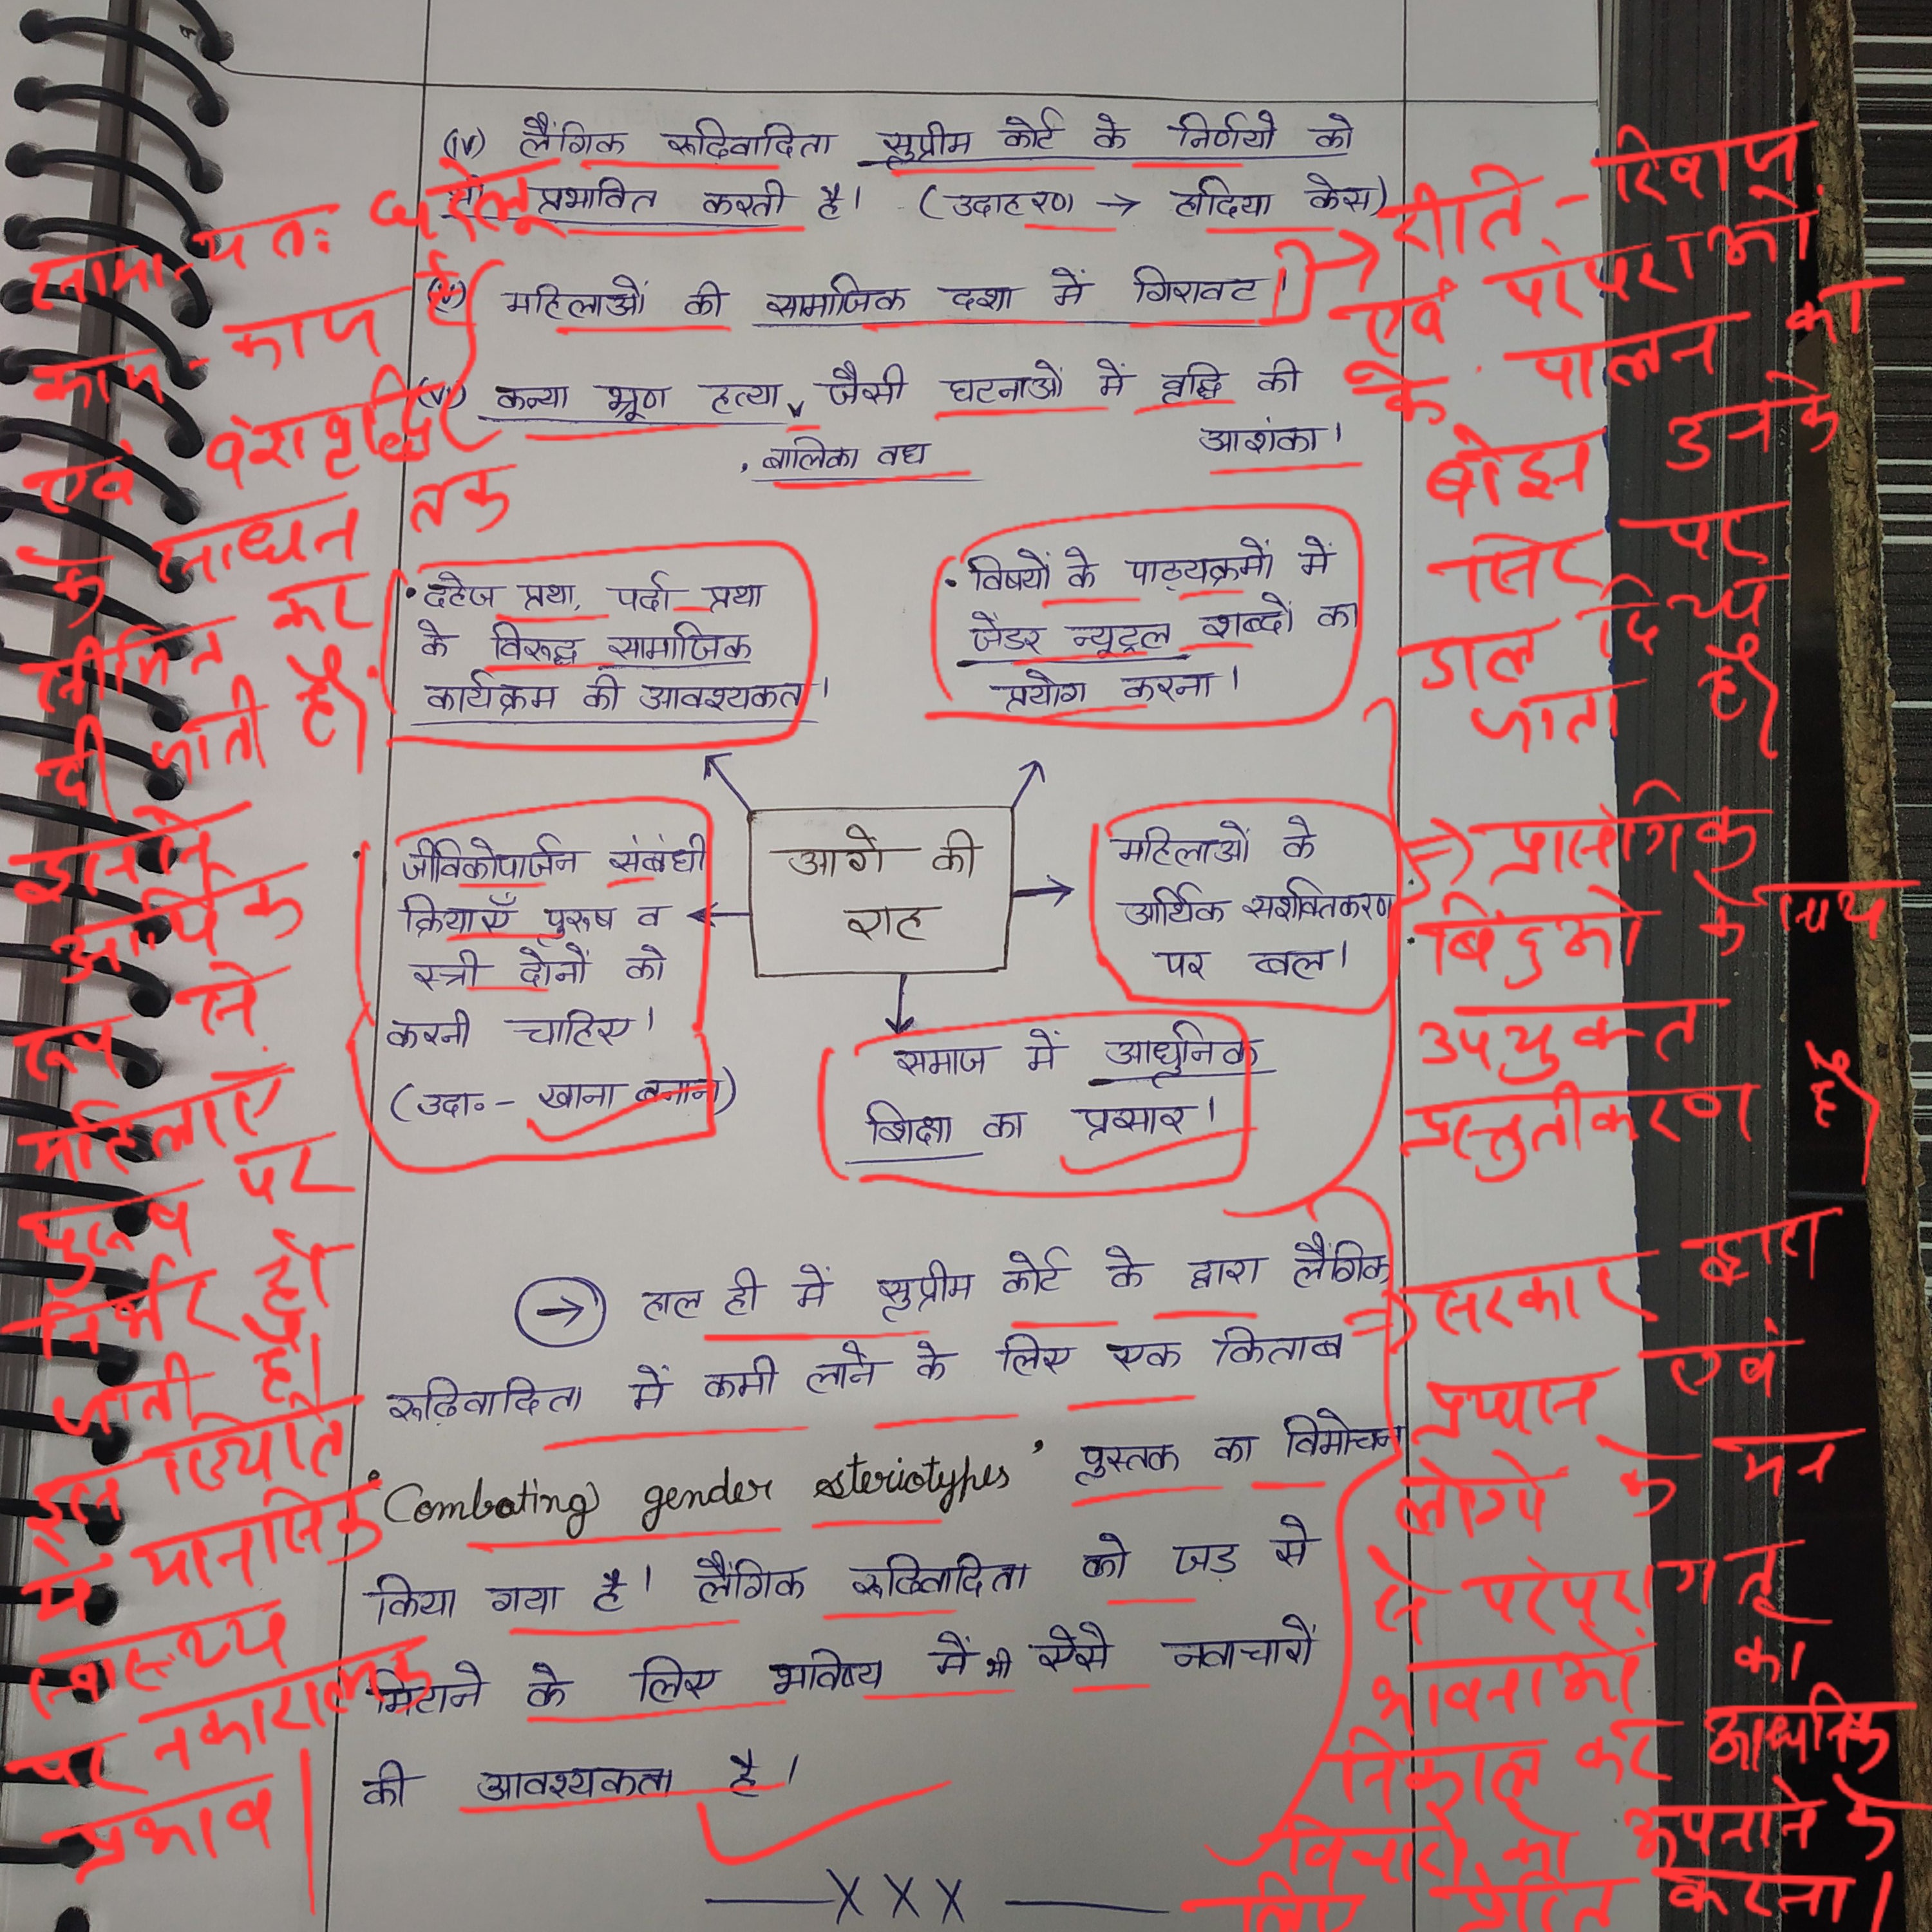 (iv) लैंगिक रूढ़िवादिता सुप्रीम कोर्ट के निर्णयों को
भी प्रभावित करती है। (उदाहरण → हादिया केस)
(v) महिलाओं की सामाजिक दशा में गिरावट।
(vi) कन्या भ्रूण हत्या, जैसी घटनाओं में वृद्धि की
, बालिका वध
आशंका।
• दहेज प्रथा, पर्दा प्रथा
के विरुद्ध सामाजिक
कार्यक्रम की आवश्यकता।
• विषयों के पाठ्यक्रमों में
जेंडर न्यूट्रल शब्दों का
प्रयोग करना।
आगे की
राह
• जीविकोपार्जन संबंधी
क्रियाएँ पुरुष व
स्त्री दोनों को
करनी चाहिए।
(उदा॰ - खाना बनाना)
महिलाओं के
आर्थिक सशक्तिकरण
पर बल।
समाज में आधुनिक
शिक्षा का प्रसार।
→ हाल ही में सुप्रीम कोर्ट के द्वारा लैंगिक
रूढ़िवादिता में कमी लाने के लिए एक किताब
'Combating gender steriotypes' पुस्तक का विमोचन
किया गया है। लैंगिक रूढ़िवादिता को जड़ से
मिटाने के लिए भविष्य में भी ऐसे नवाचारों
की आवश्यकता है।
—XXX—
सामान्यतः घरेलू
काम-काज
एवं वंशवृद्धि
के साधन तक
सीमित कर
दी जाती है।
इससे
आर्थिक
रूप से
महिलाएं
पुरुष पर
निर्भर हो
जाती है।
इस स्थिति
में मानसिक
स्वास्थ्य
पर नकारात्मक
प्रभाव।
→ रीति-रिवाज
एवं परंपराओं
के पालन का
बोझ उनके
सिर पर
डाल दिया
जाता है।
⇒ प्रासंगिक
बिंदुओं के साथ
उपयुक्त
प्रस्तुतीकरण है।
⇒ सरकार द्वारा
प्रयास एवं
लोगों के मन
से परंपरागत
भावनाओं का
निकाल कर आधुनिक
विचारों को अपनाने के
लिए प्रेरित करना।